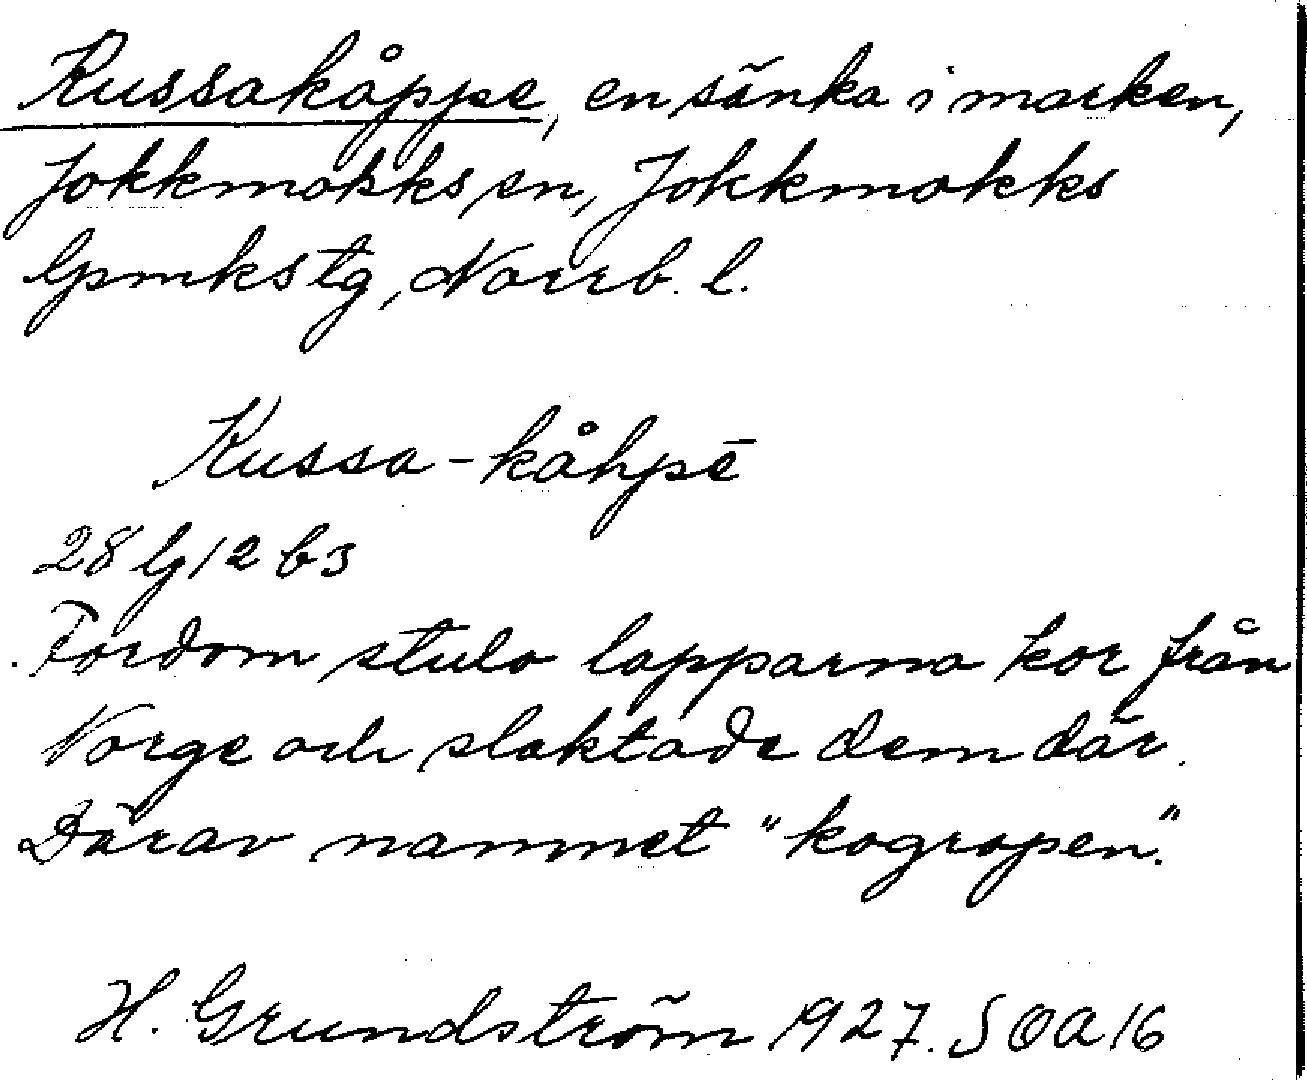 Kussakåppe, en sänka i marken,
Jokkmokks sn, Jokkmokks
lpmkstg, Norrb. l.
Kussa-kåhpē
28 G/2 b3
Fordom stulo lapparna kor från
Norge och slaktade dem där.
Därav namnet "kogropen."
H. Grundström 1927. SOA 16